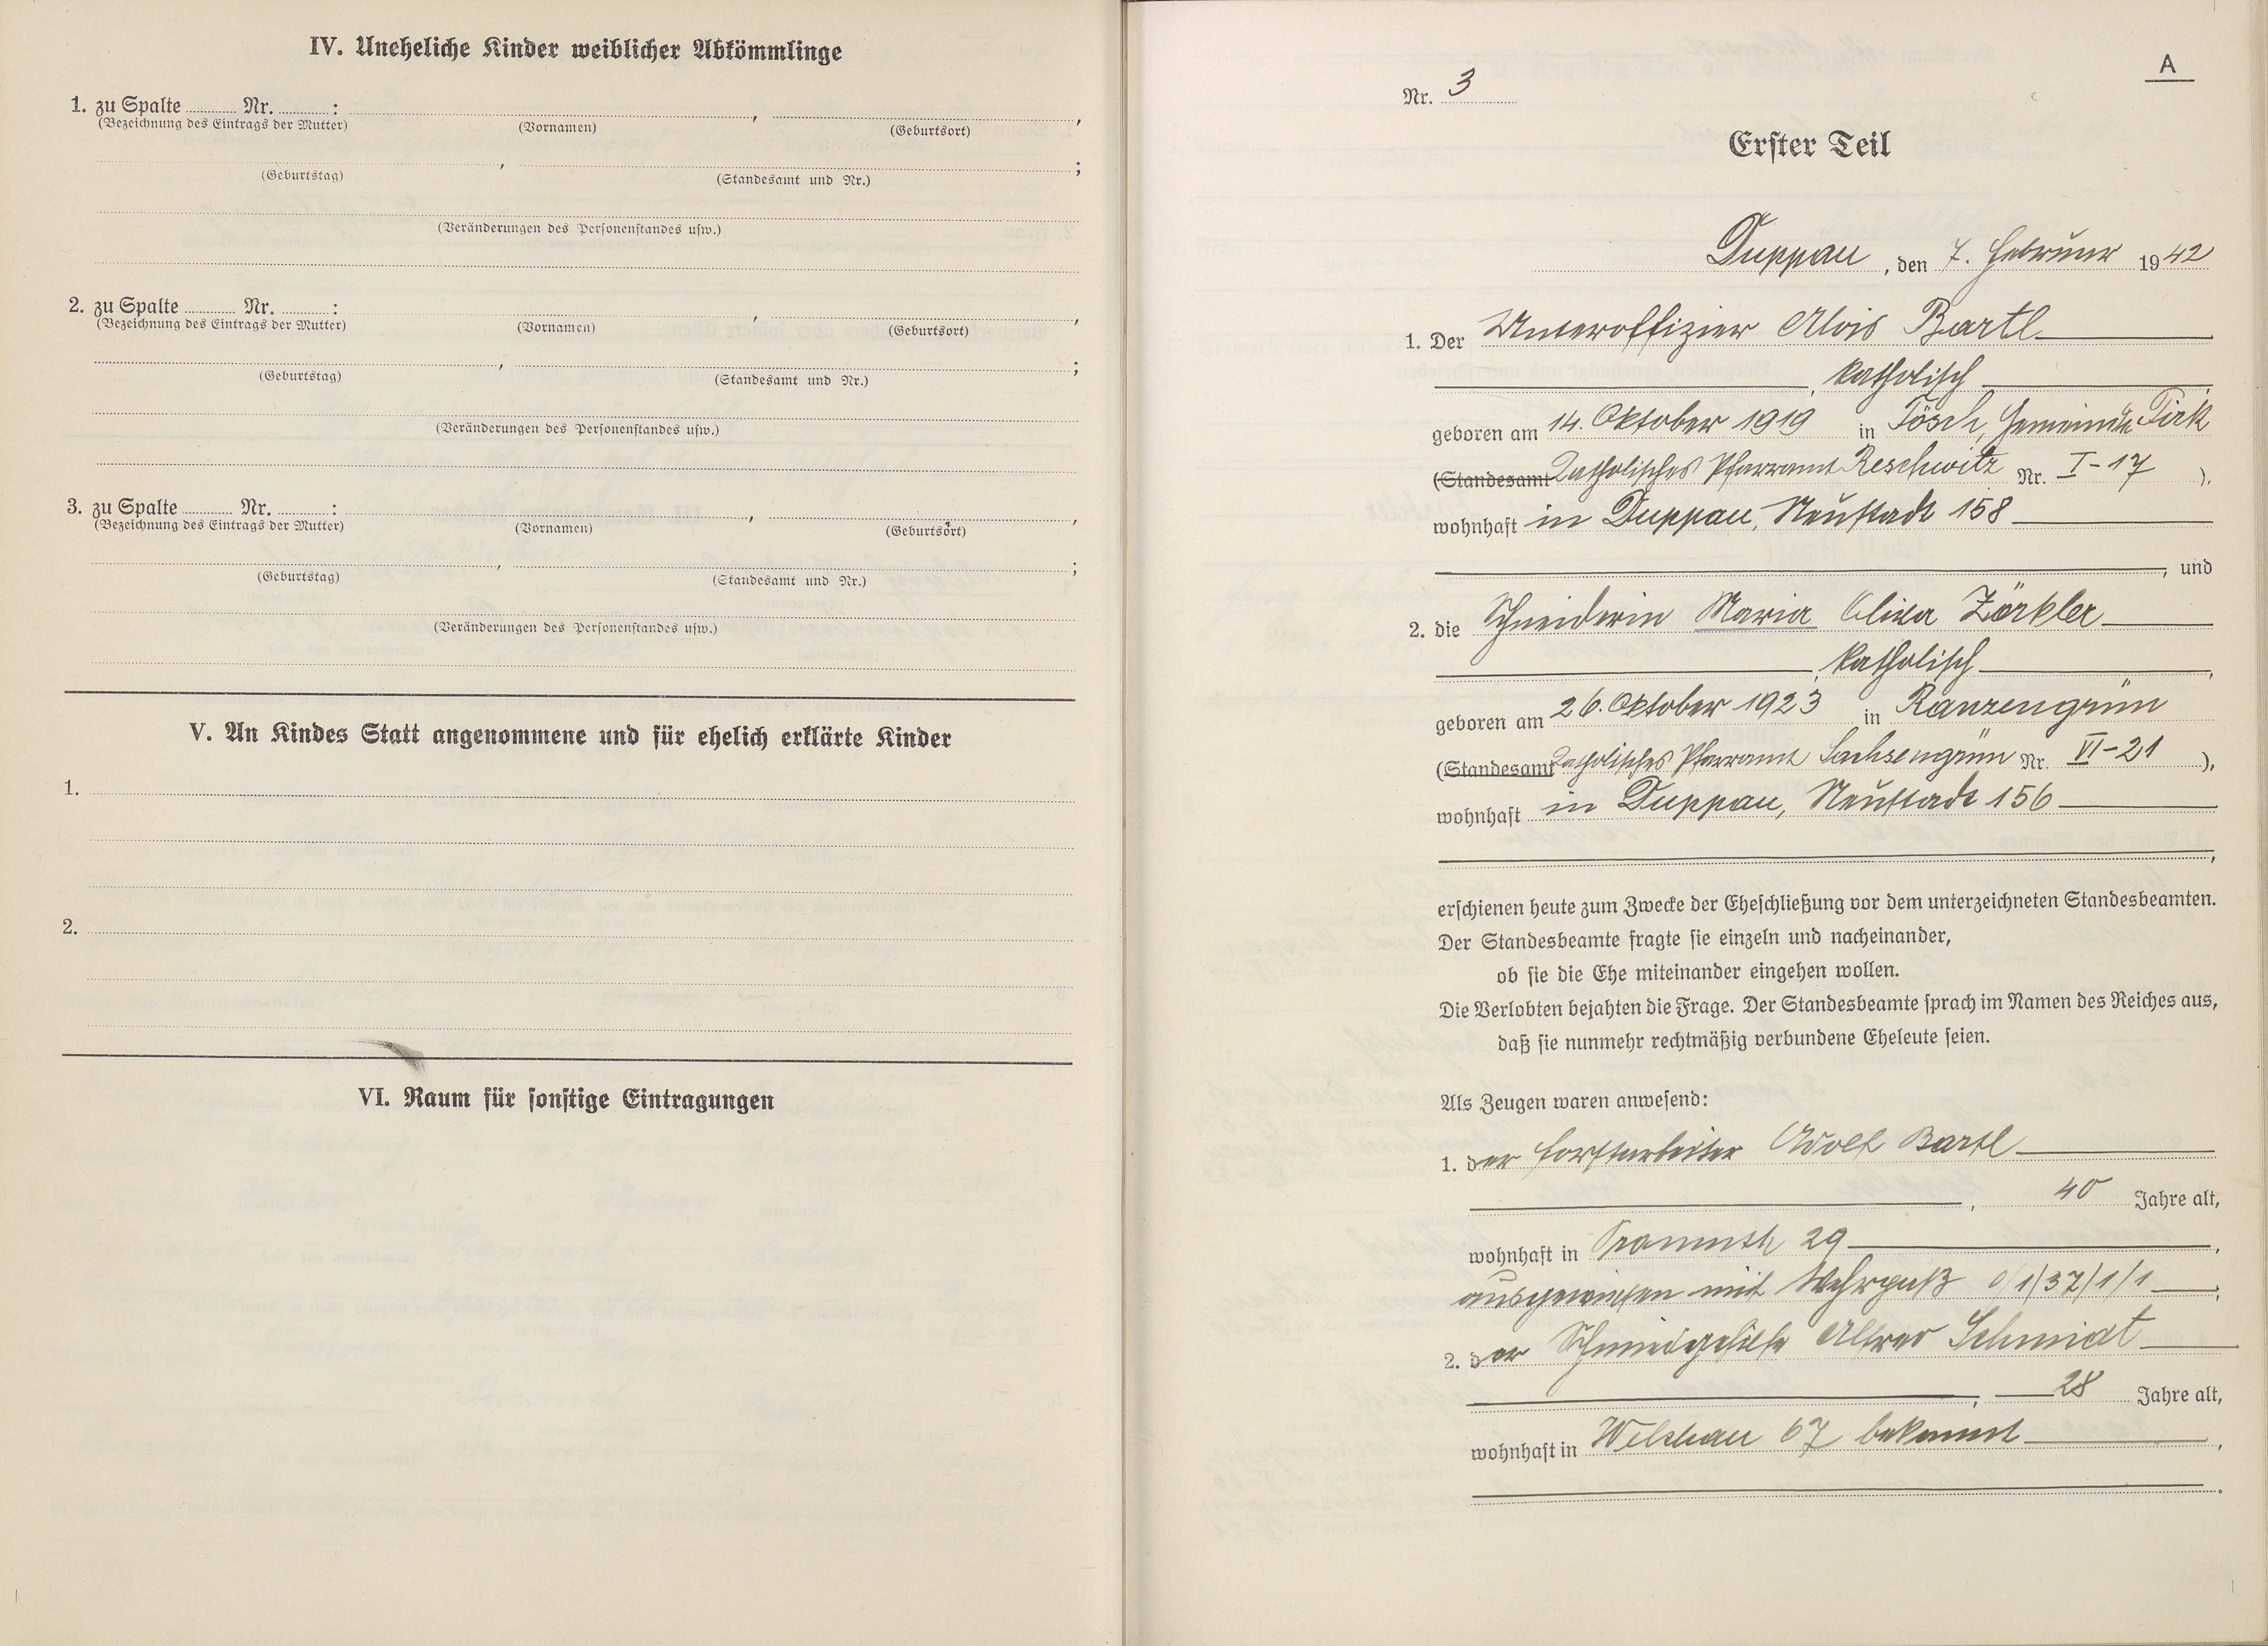 IV. Uneheliche Kinder weiblicher Abkömmlinge
1. zu Spalte ........ Nr. ........ :
(Bezeichnung des Eintrags der Mutter) (Vornamen) , (Geburtsort) ,
(Geburtstag) , (Standesamt und Nr.) ;
(Veränderungen des Personenstandes usw.)
2. zu Spalte ........ Nr. ........ :
(Bezeichnung des Eintrags der Mutter) (Vornamen) , (Geburtsort) ,
(Geburtstag) , (Standesamt und Nr.) ;
(Veränderungen des Personenstandes usw.)
3. zu Spalte ........ Nr. ........ :
(Bezeichnung des Eintrags der Mutter) (Vornamen) , (Geburtsort) ,
(Geburtstag) , (Standesamt und Nr.) ;
(Veränderungen des Personenstandes usw.)
V. An Kindes Statt angenommene und für ehelich erklärte Kinder
1.
2.
VI. Raum für sonstige Eintragungen
A
Nr. 3
Erster Teil
Duppau, den 7. Februar 1942
1. Der Unteroffizier Alois Bartl
, katholisch
geboren am 14. Oktober 1919 in Tösch, Gemeinde Tirk
(Standesamt Katholisches Pfarramt Reschwitz Nr. I-17 ),
wohnhaft in Duppau, Neustadt 158
, und
2. die Schneiderin Maria Zörkler
, katholisch ,
geboren am 26. Oktober 1923 in Ranzengrün
(Standesamt Katholisches Pfarramt Sachsengrün Nr. VI-21 ),
wohnhaft in Duppau, Neustadt 156
,
erschienen heute zum Zwecke der Eheschließung vor dem unterzeichneten Standesbeamten.
Der Standesbeamte fragte sie einzeln und nacheinander,
ob sie die Ehe miteinander eingehen wollen.
Die Verlobten bejahten die Frage. Der Standesbeamte sprach im Namen des Reiches aus,
daß sie nunmehr rechtmäßig verbundene Eheleute seien.
Als Zeugen waren anwesend:
1. der Forstarbeiter Adolf Bartl
, 40 Jahre alt,
wohnhaft in 29 ,
ausgewiesen mit Wehrpaß 1/37/1/1 ;
2. der Schmiedgehilfe Alfred Schmidt
, 28 Jahre alt,
wohnhaft in Welchau 67 bekannt ,
.